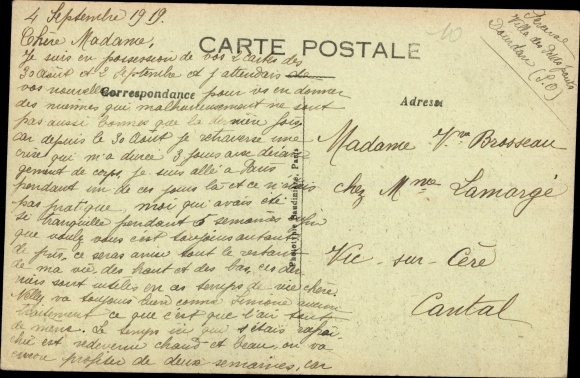 4 Septembre 1919.
Chère Madame,
Je suis en possession de vos 2 cartes des
30 Août et 2 Septembre et j'attendais
vos nouvelles pour vous en donner
des miennes qui malheureusement ne sont
pas aussi bonnes que la dernière fois
car depuis le 30 Août je retraverse une
crise qui m'a durée 3 jours avec déran
gement de corps, je suis allé à Paris
pendant un de ces jours là et ce n'étais
pas pratique, moi qui avais été
si tranquille pendant 5 semaines
que voulez vous c'est toujours autant
de pris, ce sera ainsi tout le restant
de ma vie, des haut et des bas, ces
sont utiles en ces temps de vie chère.
Nelly va toujours bien comme Simone
ce que c'est que l'air
de même. Le temps ici qui s'était rafraî
chit est redevenu chaud et beau, on va
profiter de deux semaines, car
CARTE POSTALE
Correspondance
Adresse
Phototypie Baudinière, Paris
10
Villa des
Dourdan (S.O)
Madame Vve Brosseau
chez Mme Lamargé
Vic-sur-Cère
Cantal